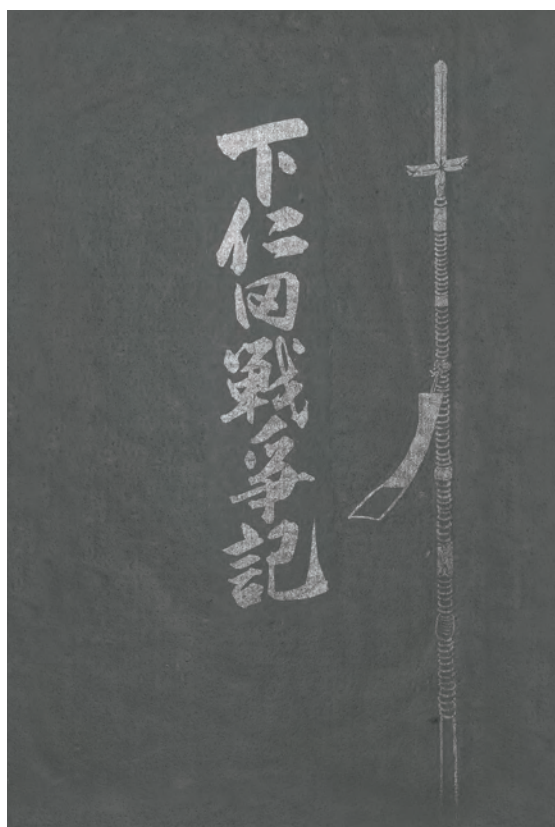 下仁田戰爭記